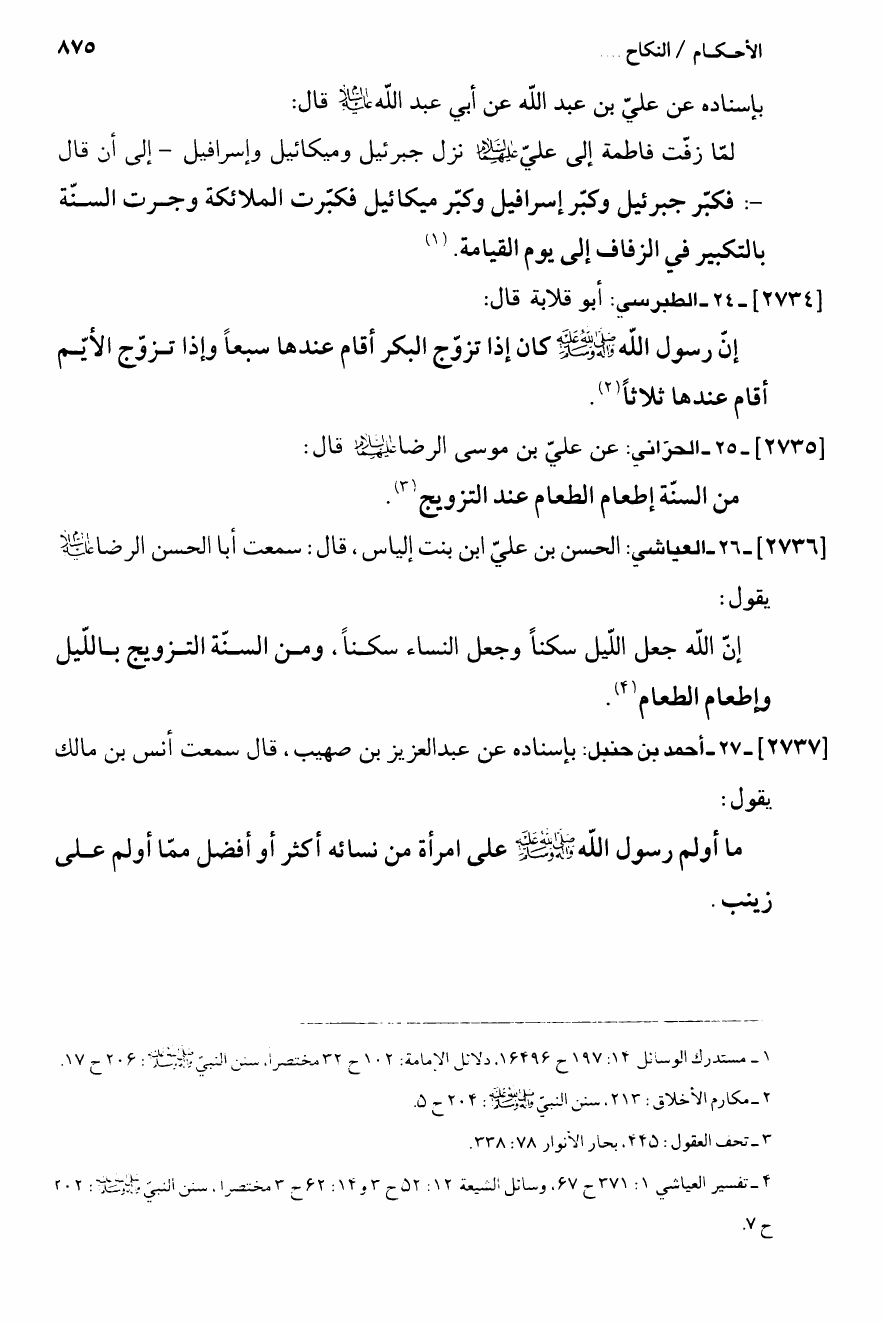 الأحكام / النكاح .... ٨٧٥
بإسناده عن عليّ بن عبد اللّه عن أبي عبد اللّه عليه السلام قال:
لمّا زفّت فاطمة إلى عليّ عليهما السلام نزل جبرئيل وميكائيل وإسرافيل – إلى أن قال
–: فكبّر جبرئيل وكبّر إسرافيل وكبّر ميكائيل فكبّرت الملائكة وجرت السنّة
بالتكبير في الزفاف إلى يوم القيامة.(١)
[٢٧٣٤] ـ ٢٤ ـ الطبرسي: أبو قلابة قال:
إنّ رسول اللّه صلى الله عليه وآله وسلم كان إذا تزوّج البكر أقام عندها سبعاً وإذا تزوّج الأيّم
أقام عندها ثلاثاً(٢).
[٢٧٣٥] ـ ٢٥ ـ الحرّاني: عن عليّ بن موسى الرضا عليهما السلام قال:
من السنّة إطعام الطعام عند التزويج(٣).
[٢٧٣٦] ـ ٢٦ ـ العياشي: الحسن بن عليّ ابن بنت إلياس، قال: سمعت أبا الحسن الرضا عليه السلام
يقول:
إنّ اللّه جعل اللّيل سكناً وجعل النساء سكناً، ومن السنّة التزويج باللّيل
وإطعام الطعام(۴).
[٢٧٣٧] ـ ٢٧ ـ أحمد بن حنبل: بإسناده عن عبدالعزيز بن صهيب، قال سمعت أنس بن مالك
يقول:
ما أولم رسول اللّه صلى الله عليه وآله وسلم على امرأة من نسائه أكثر أو أفضل ممّا أولم على
زينب.
١ ـ مستدرك الوسائل ١۴: ١٩٧ ح ١۶۴٩۶، دلائل الإمامة: ١٠٢ ح ٣٢ مختصراً، سنن النبيّ صلى الله عليه وآله وسلم: ٢٠۶ ح ١٧.
٢ ـ مكارم الأخلاق: ٢١٣، سنن النبيّ صلى الله عليه وآله وسلم: ٢٠۴ ح ۵.
٣ ـ تحف العقول: ۴۴۵، بحار الأنوار ٧٨: ٣٣٨.
۴ ـ تفسير العياشي ١: ٣٧١ ح ۶٧، وسائل الشيعة ١٢: ۵٢ ح ٣ و ١۴: ۶٢ ح ٣ مختصراً، سنن النبيّ صلى الله عليه وآله وسلم: ٢٠٢
ح ٧.